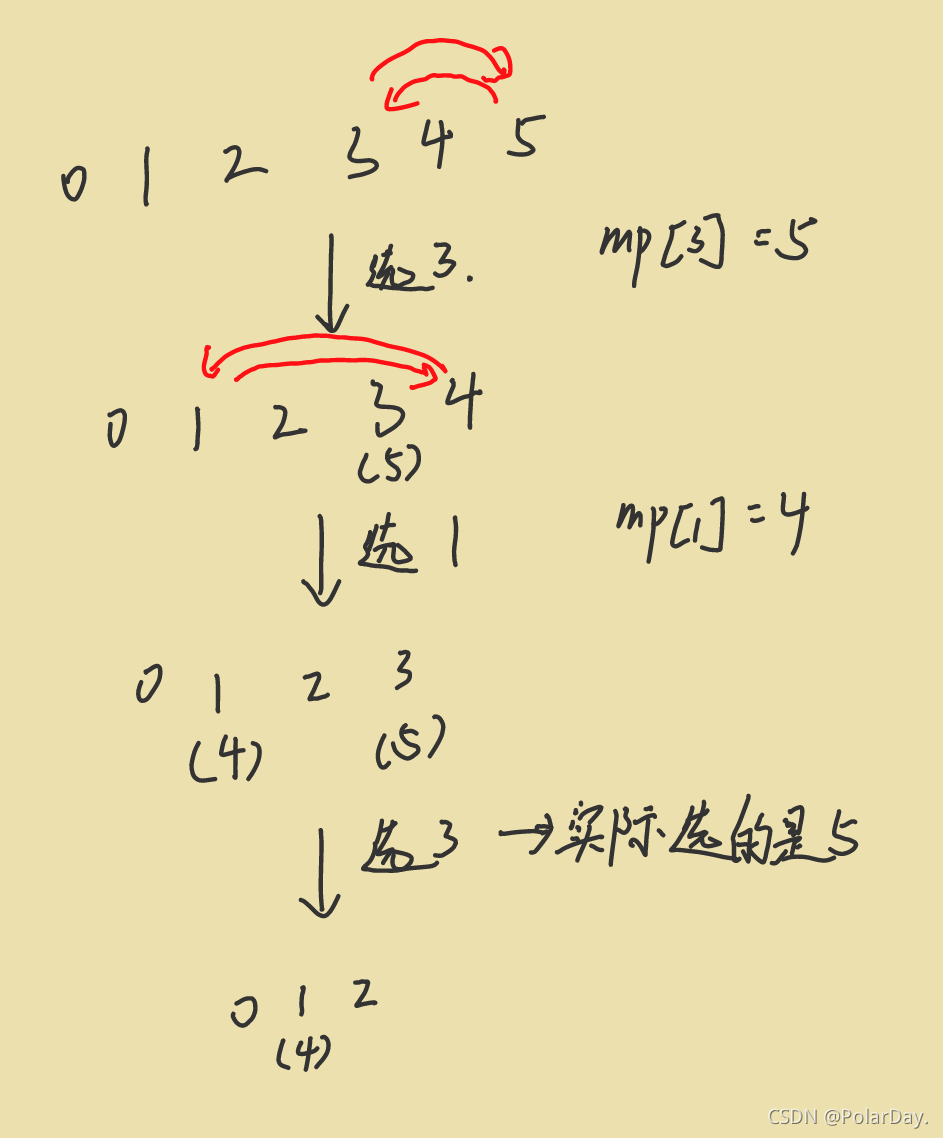 0 1 2 3 4 5
mp[3]=5
选3.
0 1 2 3 4
(5)
选 1
mp[1]=4
0 1 2 3
(4) (5)
选3 →实际选的是5
0 1 2
(4)
CSDN @PolarDay.